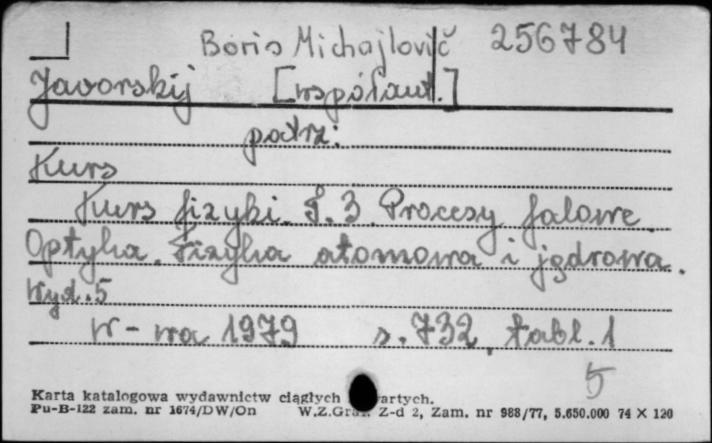 Boris Michajlovič 256784
Javorskij [współaut.]
patrz:
Kurs
Kurs fizyki. T. 3. Procesy falowe.
Optyka. Fizyka atomowa i jądrowa.
Wyd. 5
W-wa 1979 s. 732, tabl. 1
5
Karta katalogowa wydawnictw ciągłych
Pu-B-122 zam. nr 1674/DW/On W.Z.Graf. Z-d 2, Zam. nr 988/77, 5.650.000 74 X 120